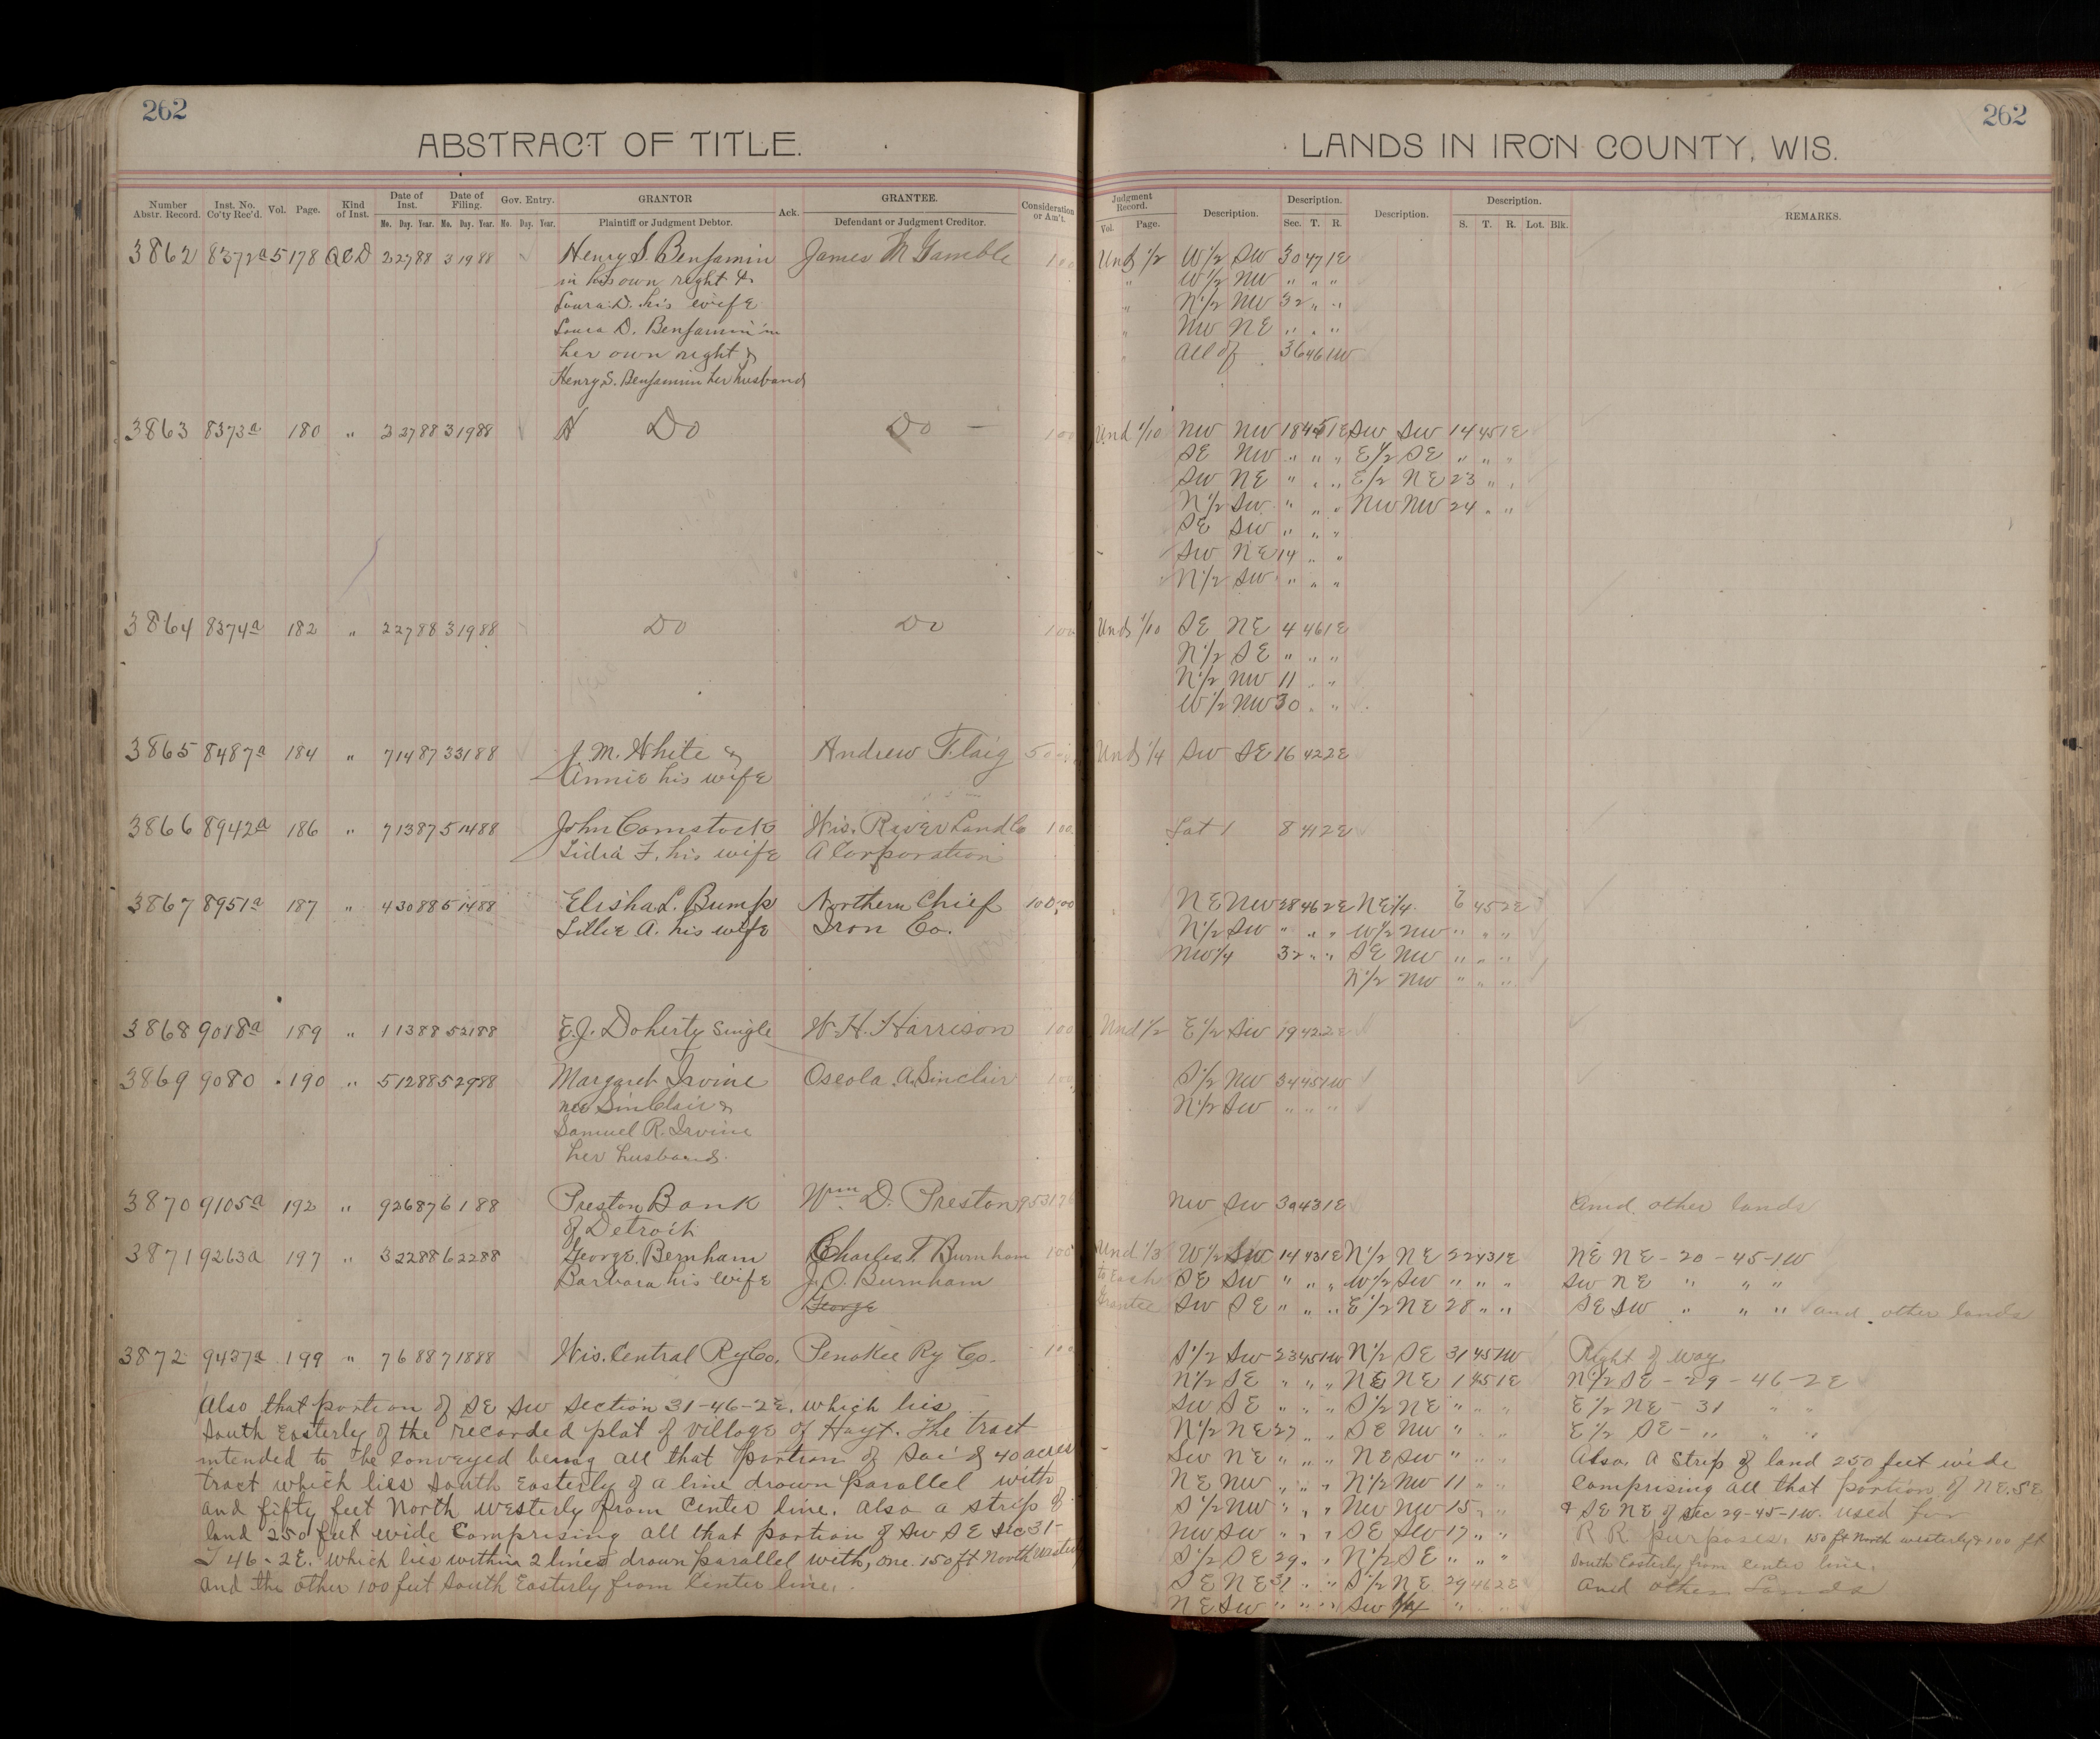 262
ABSTRACT OF TITLE.
Number Abstr. Record. Inst. No. Co'ty Rec'd. Vol. Page. Kind of Inst. Date of Inst. Date of Filing. Gov. Entry. GRANTOR Ack. GRANTEE. Consideration or Am't.
Mo. Day. Year. Mo. Day. Year. Mo. Day. Year. Plaintiff or Judgment Debtor. Defendant or Judgment Creditor.
3862 8372a 5 178 QCD 2 27 88 3 19 88 Henry S. Benjamin James M Gamble 100
in his own right &
Loura D. his wife
Loura D. Benjamin in
her own right &
Henry S. Benjamin her husband
3863 8373a 180 " 2 27 88 3 19 88 Do Do 100
3864 8374a 182 " 2 27 88 3 19 88 Do Do 100
3865 8487a 184 " 7 14 87 3 31 88 J. M. White & Andrew Flaig
Annie his wife
3866 8942a 186 " 7 13 87 5 14 88 John Comstock Wis. River Land Co 100
Lidia F. his wife A Corporation
3867 8951a 187 " 4 30 88 5 14 88 Elisha L. Bump Northern Chief 100.00
Lillie A. his wife Iron Co.
3868 9018a 189 " 1 13 88 5 21 88 E.J. Doherty Single W. H. Harrison 100
3869 9080 190 " 5 12 88 5 29 88 Margaret Irvine Oseola A. Sinclair 100
nee SinClair &
Samuel R. Irvine
her husband.
3870 9105a 192 " 9 26 87 6 1 88 Preston Bank Wm D. Preston
of Detroit
3871 9263a 197 " 3 22 88 6 22 88 George Bernham Charles T. Burnham 100
Barbara his wife J. O. Burnham
George
3872 9437a 199 " 7 6 88 7 18 88 Wis. Central Ry Co. Penokee Ry Co. 100
Also that portion of SE SW Section 31-46-2E. which lies
South Easterly of the recorded plat of village of Hoyt. The tract
intended to be conveyed being all that portion of said 40 acres
tract which lies South Easterly of a line drown parallel with
and fifty feet North westerly from Center line. also a strip of
land 250 feet wide Comprising all that portion of SW SE Sec 31-
T 46-2E. which lies within 2 lines drown parallel with, one 150 ft North Westerly
and the other 100 feet South Easterly from Center line.
262
LANDS IN IRON COUNTY, WIS.
Judgment Record. Description. Description. Description. Description. REMARKS.
Vol. Page. Sec. T. R. S. T. R. Lot. Blk.
Und 1/2 W 1/2 SW 30 47 1E
" W 1/2 NW " " "
" N 1/2 NW 32 " "
" NW NE " " "
" All of 36 46 1W
Und 1/10 NW NW 18 45 1E SW SW 14 45 1E
SE NW " " " E 1/2 SE " " "
SW NE " " " E 1/2 NE 23 " "
N 1/2 SW " " " NW NW 24 " "
SE SW " " "
SW NE 14 " "
N 1/2 SW " " "
Und 1/10 SE NE 4 46 1E
N 1/2 SE " " "
N 1/2 NW 11 " "
W 1/2 NW 30 " "
Und 1/4 SW SE 16 42 2E
Lot 1 8 41 2E
NE NW 28 46 2E NE 1/4 6 45 2E
N 1/2 SW " " " W 1/2 NW " " "
NW 1/4 32 " " SE NW " " "
N 1/2 NW " " "
Und 1/2 E 1/2 SW 19 42 2E
S 1/2 NW 34 45 1W
N 1/2 SW " " "
NW SW 30 43 1E and other lands
Und 1/3 W 1/2 SW 14 43 1E N 1/2 NE 22 43 1E NE NE - 20 - 45 - 1W
to Each SE SW " " " W 1/2 SW " " " SW NE " " "
Grantee SW SE " " " E 1/2 NE 28 " " SE SW " " " and other lands
S 1/2 SW 23 45 1W N 1/2 SE 31 45 1W Right of way
N 1/2 SE " " " NE NE 1 45 1E N 1/2 SE - 29 - 46 - 2E
SW SE " " " S 1/2 NE " " " E 1/2 NE - 31 " "
N 1/2 NE 27 " " SE NW " " " E 1/2 SE - " " "
SW NE " " " NE SW " " " Also. A Strip of land 250 feet wide
NE NW " " " N 1/2 NW 11 " " Comprising all that portion of NE. SE
S 1/2 NW " " " NW NW 15 " " & SE NE of Sec 29-45-1W. used for
NW SW " " " SE SW 17 " " R R purposes. 150 ft North westerly & 100 ft
S 1/2 SE 29 " " N 1/2 SE " " " South Easterly from Center line.
SE NE 31 " " S 1/2 NE 29 46 2E And other Lands
NE SW " " " SW 1/4 " " "